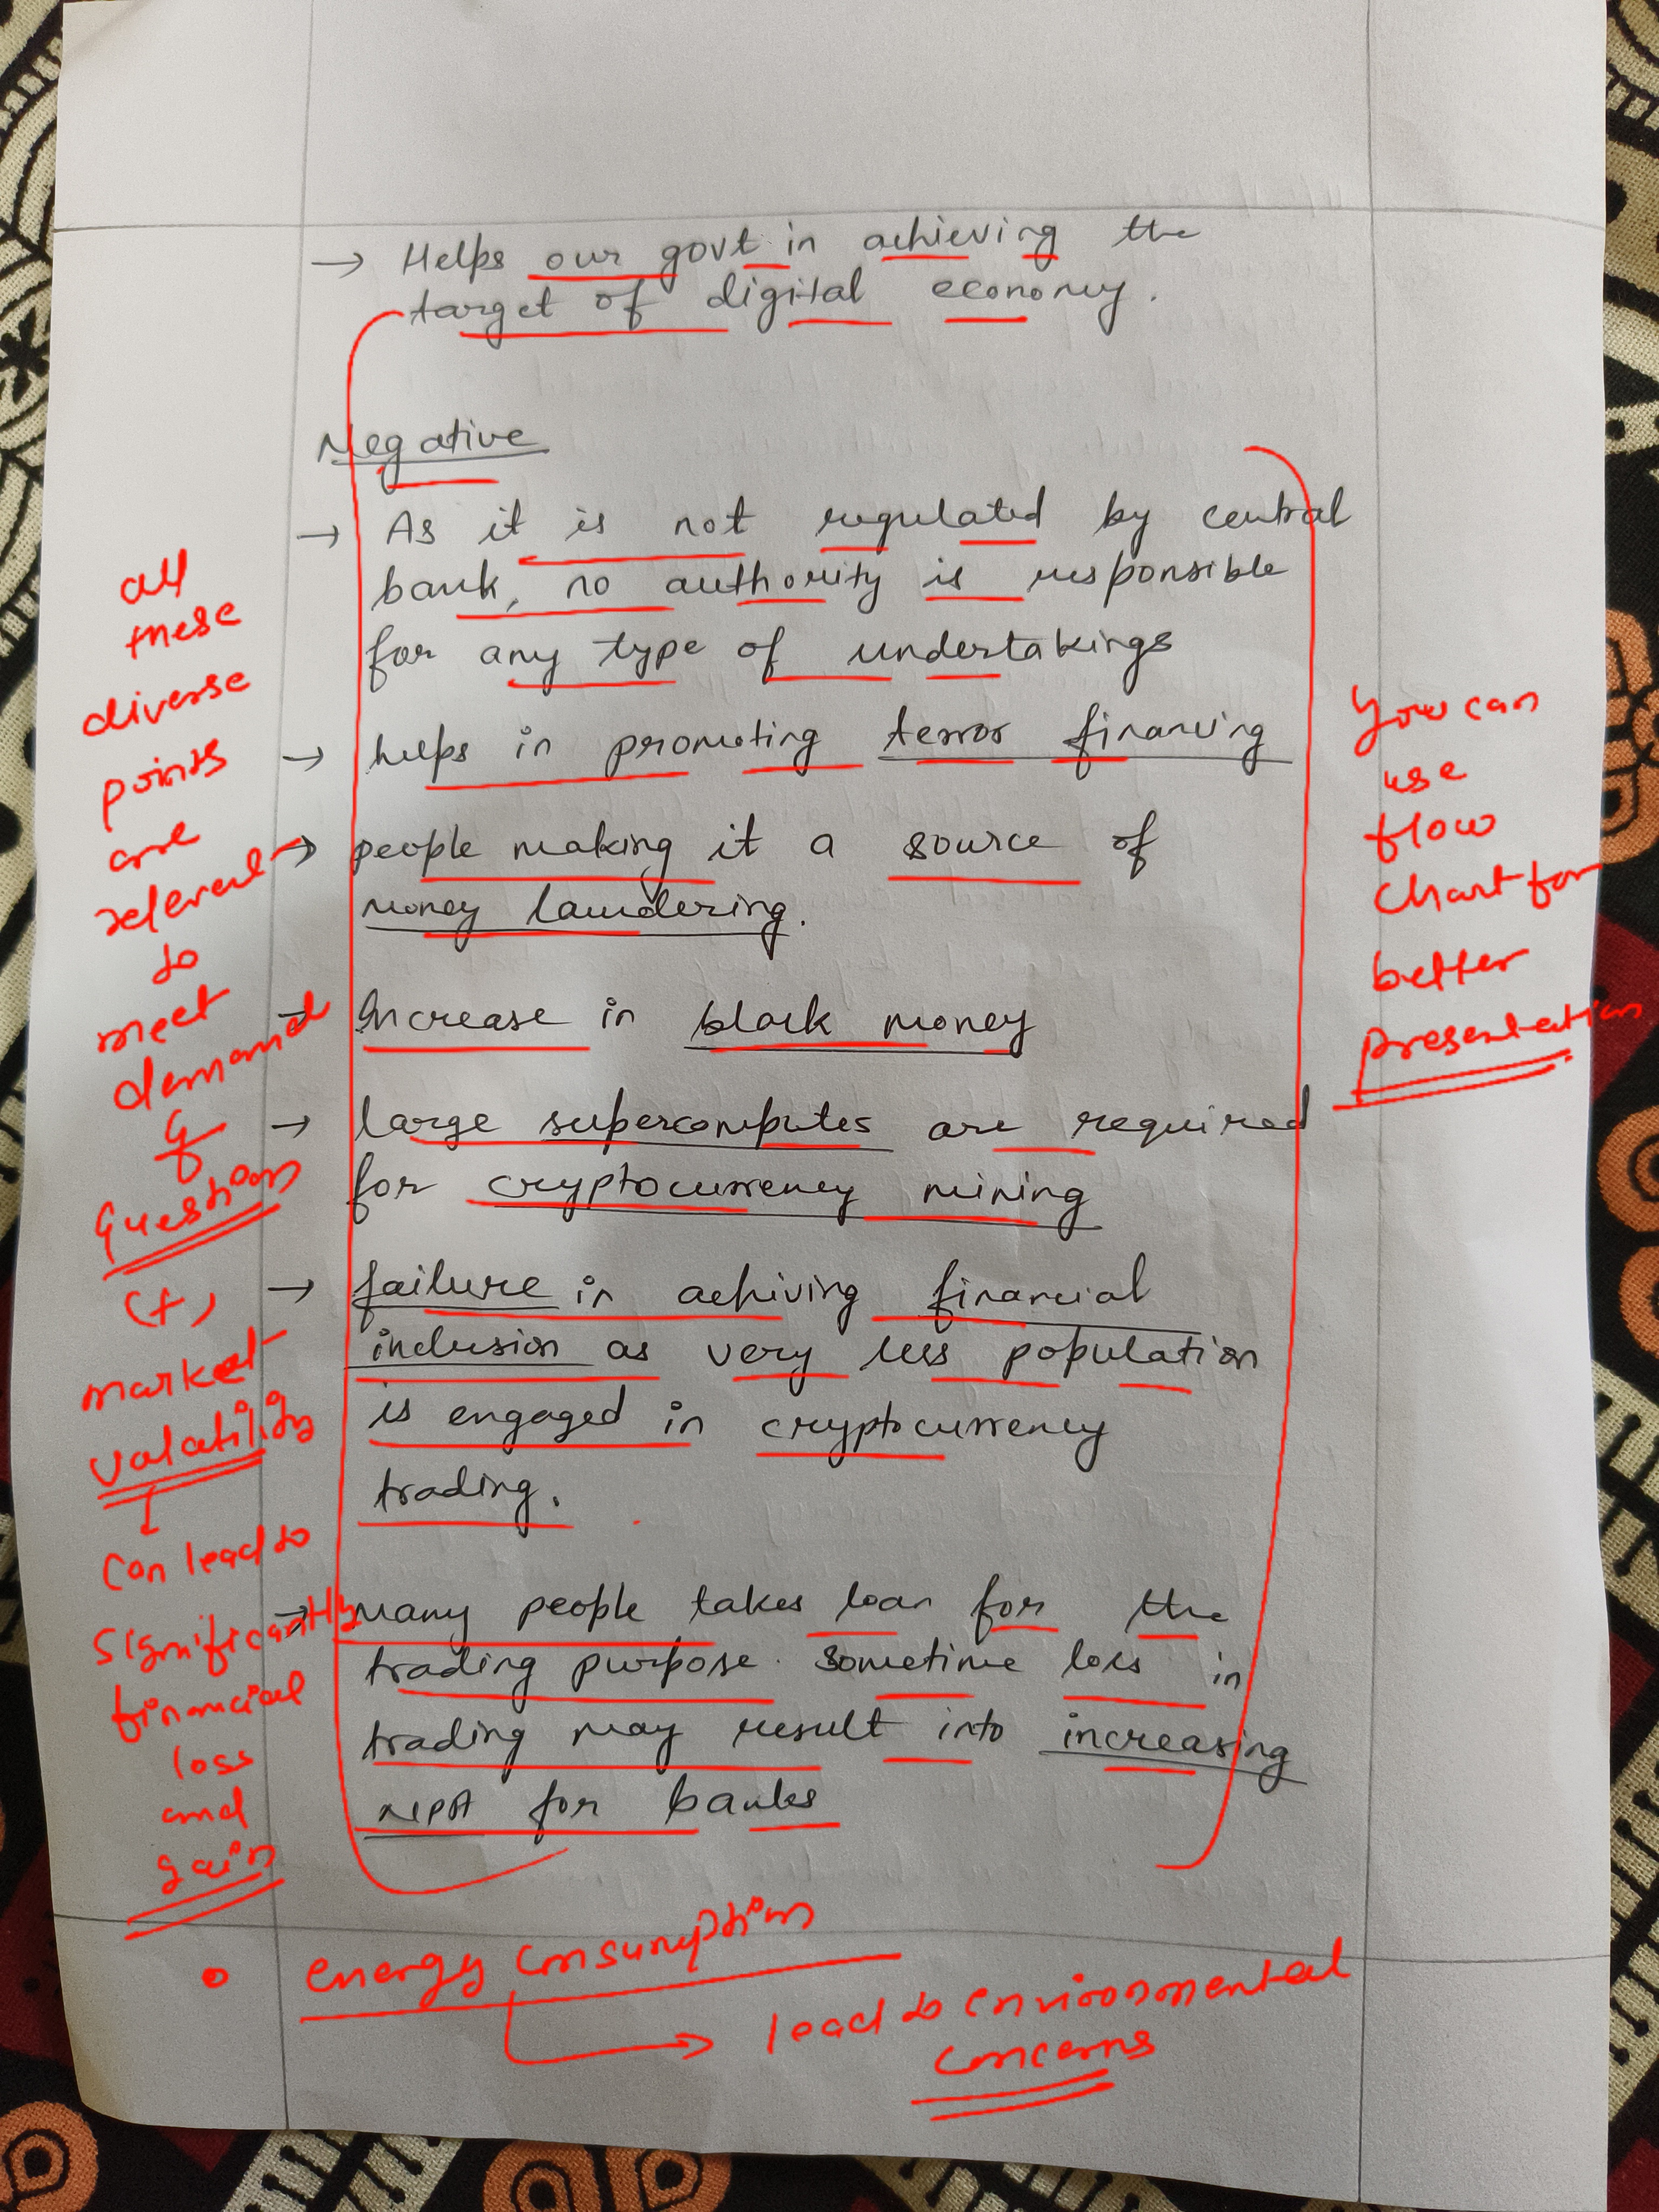 → Helps our govt in achieving the
target of digital economy.
Negative
→ As it is not regulated by central
bank, no authority is responsible
for any type of undertakings
→ helps in promoting terror financing
→ people making it a source of
money laundering.
→ Increase in black money
→ large supercomputes are required
for cryptocurrency mining
→ failure in achiving financial
inclusion as very less population
is engaged in cryptocurrency
trading.
→ Many people takes loan for the
trading purpose. Sometime loss in
trading may result into increasing
NPA for banks
all
these
diverse
points
are
relevent
to
meet
demand
of
question
(+)
market
valatility
↓
can lead to
significantly
financial
loss
and
gain
You can
use
flow
chart for
better
presentation
• energy consumption
→ lead to environmental
concerns